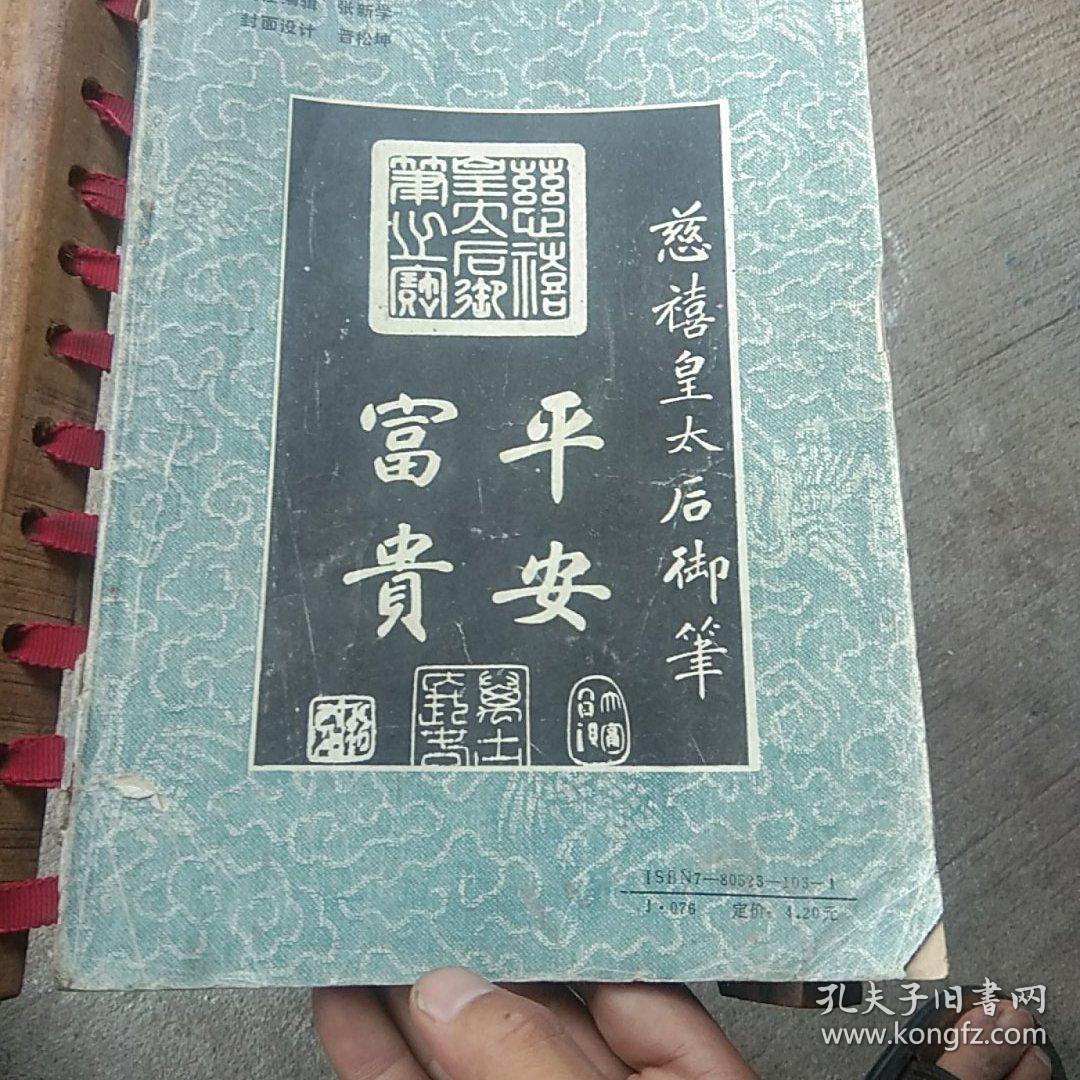 辑 张新学
封面设计 晋松坤
慈禧
皇太后御
筆之寶
慈禧皇太后御筆
平安
富貴
ISBN7-80523-103-1
J·076 定价：4.20元
孔夫子旧書网
www.kongfz.com